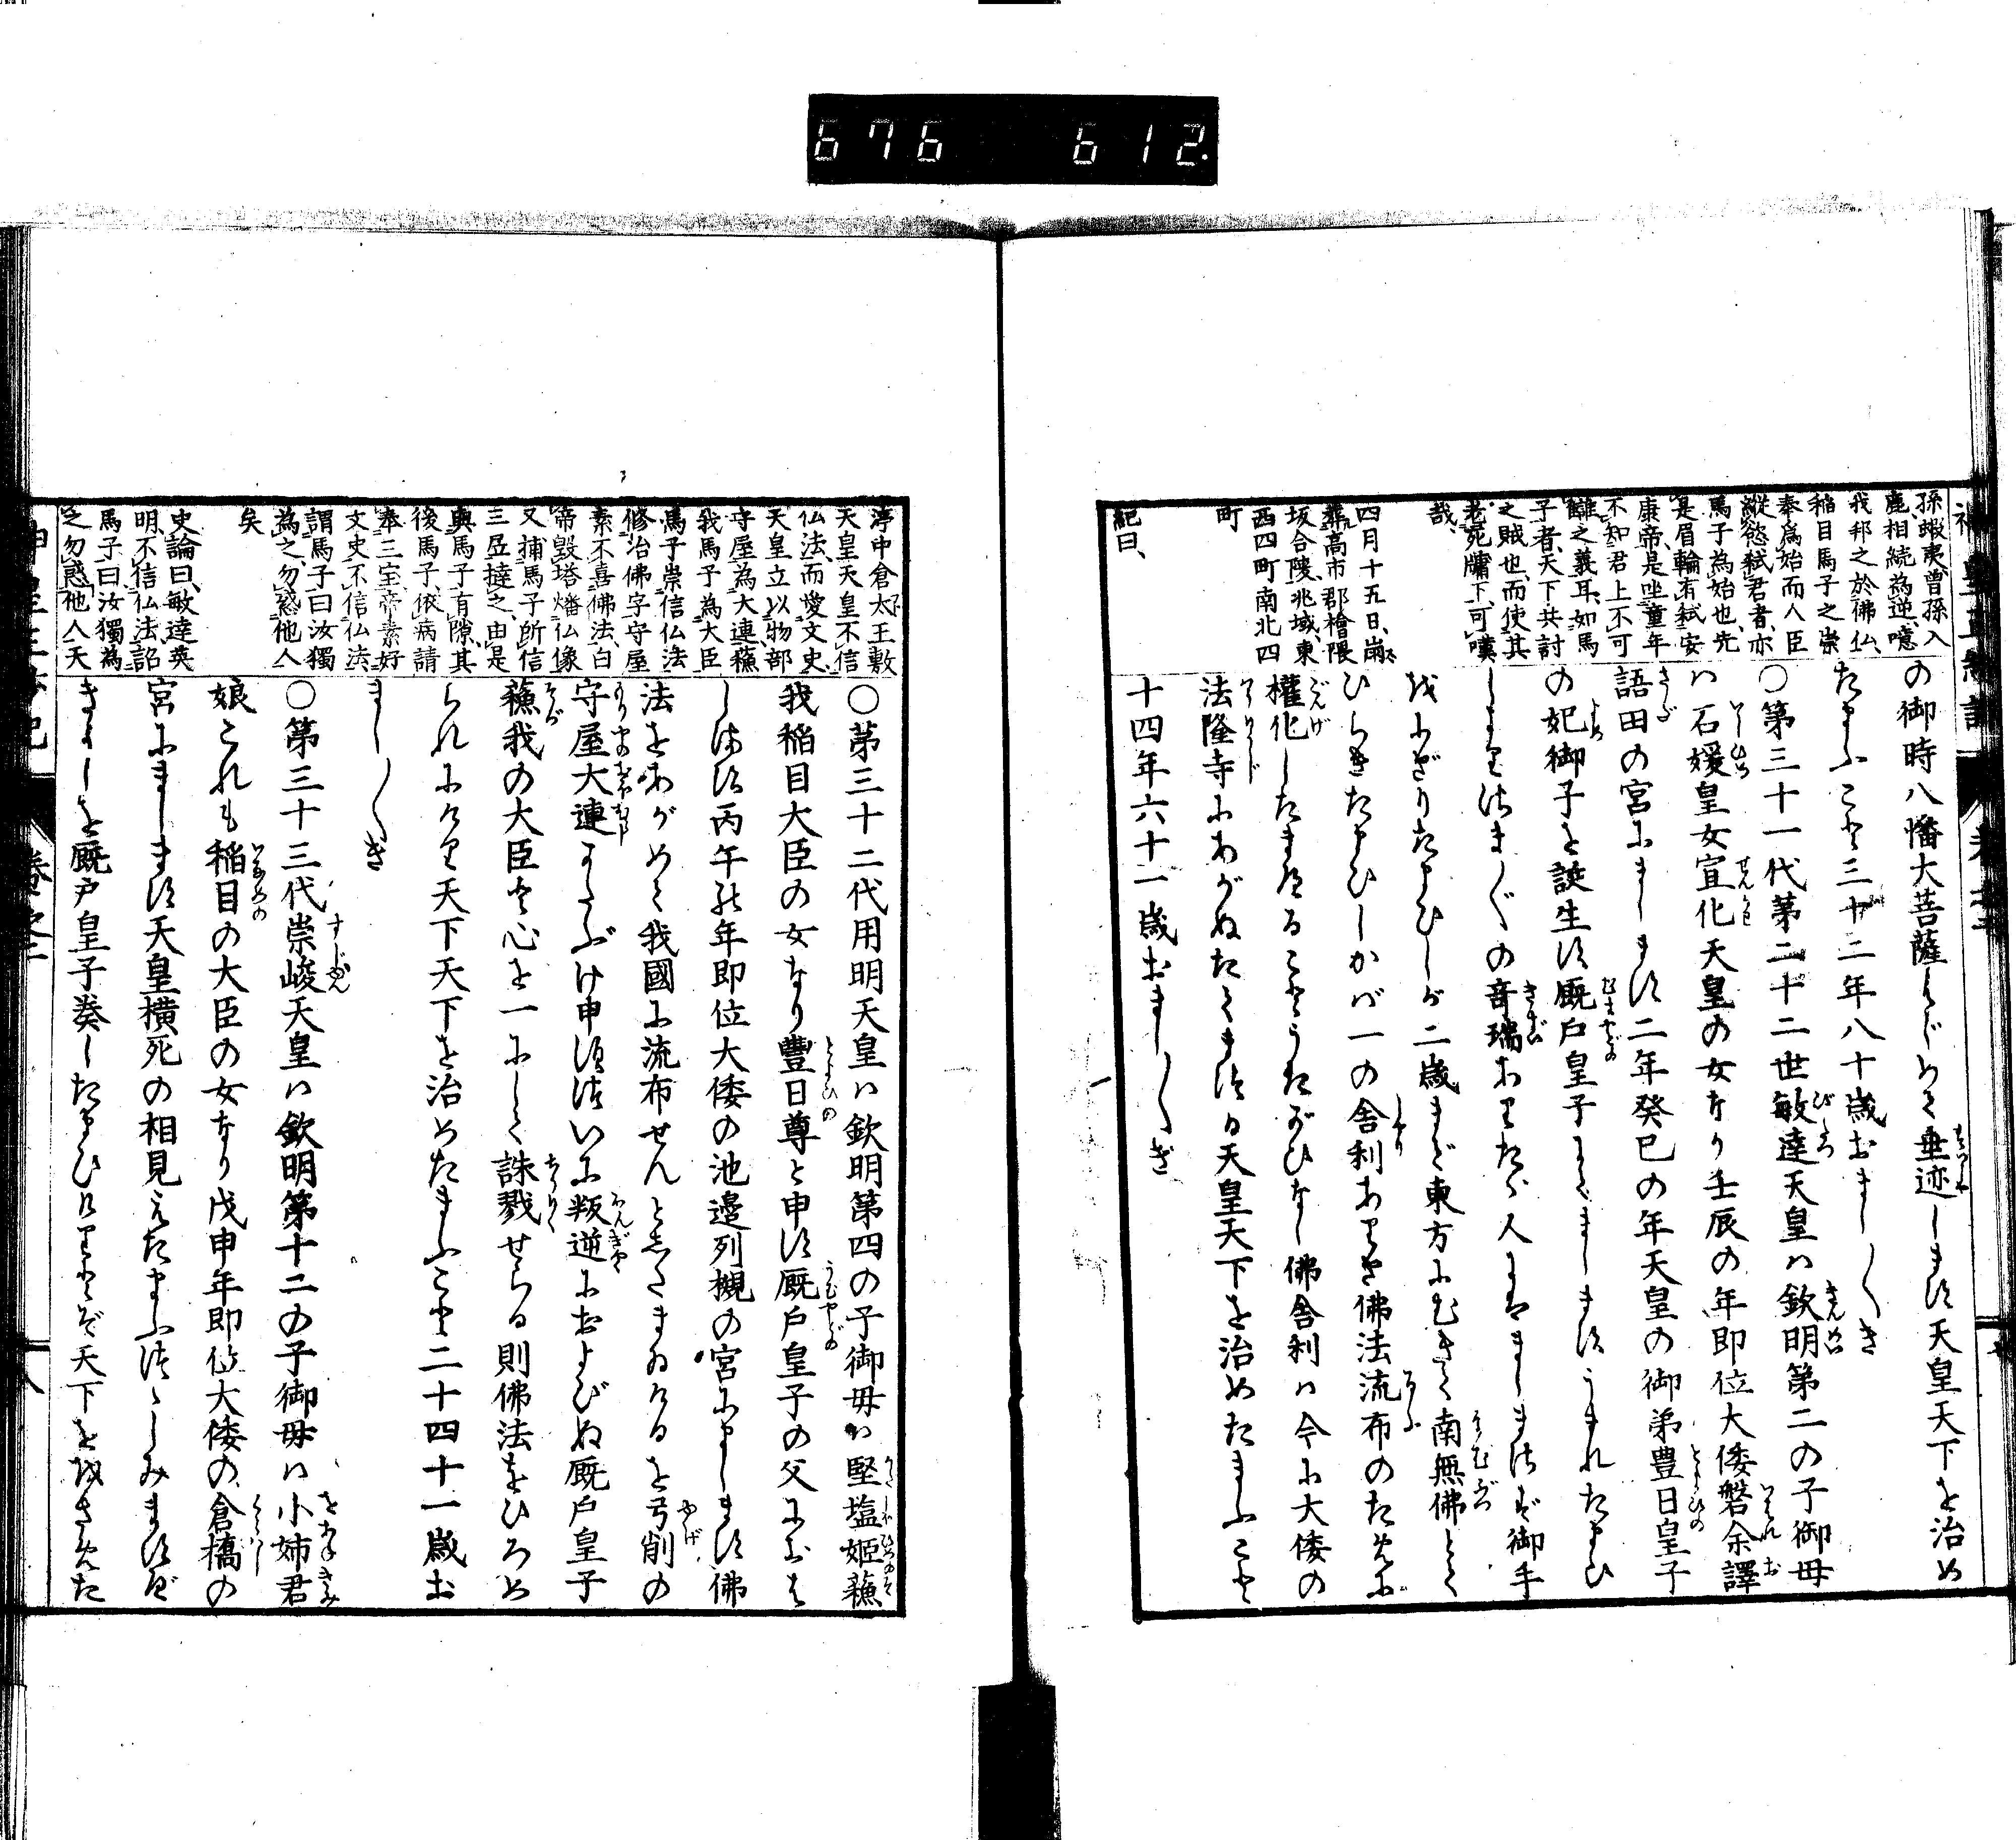 676 612.
孫蝦夷曽孫入
鹿相続為逆、噫
我邦之於佛仏、
稲目馬子之崇
奉為始而人臣
縦慾弑君者、亦
馬子為始也、先
是眉輪有弑安
康帝是坐童年
不知君上不可
讎之義耳、如馬
子者、天下共討
之賊也、而使其
老死牖下、可嘆
哉、
四月十五日、崩
葬高市郡檜隈
坂合陵、兆域、東
西四町南北四
町
紀曰、
の御時八幡大菩薩はじめて垂迹します天皇天下を治め
たまふこと三十二年八十歳おまし〳〵き
〇第三十一代第二十二世敏達天皇ハ欽明第二の子御母
ハ石媛皇女宣化天皇の女なり壬辰の年即位大倭磐余譯
語田の宮にまします二年癸巳の年天皇の御弟豊日皇子
の妃御子を誕生す厩戸皇子にてましますうまれたまひ
しよりさま〴〵の奇瑞ありたゞ人にましまさず御手
をにぎりたまひしが二歳まで東方にむきて南無佛とて
ひらきたまひしかば一の舎利ありき佛法流布のために
權化したまへることうたがひなし佛舎利ハ今に大倭の
法隆寺にあがめたてまつる天皇天下を治めたまふこと
十四年六十一歳おまし〳〵き
渟中倉太玉敷
天皇天皇不信
仏法、而愛文史、
天皇立以物部
守屋為大連、蘓
我馬子為大臣
馬子崇信仏法
修治佛字守屋
素不喜佛法、白
帝毀塔燔仏像
又捕馬子所信
三尼撻之、由是
與馬子有隙、其
後馬子、依病請
奉三宝、帝素好
文史不信仏法
謂馬子曰汝獨
為之、勿惑他人
矣
史論曰、敏達英
明、不信仏法詔
馬子曰、汝獨為
之勿惑他人天
〇第三十二代用明天皇ハ欽明第四の子御母ハ堅塩姫蘓
我稲目大臣の女なり豐日尊と申す厩戸皇子の父におは
します丙午の年即位大倭の池邉列槻の宮にまします佛
法をあがめて我國に流布せんとしたまひけるを弓削の
守屋大連かたぶけ申すつひに叛逆におよびぬ厩戸皇子
蘓我の大臣と心を一にして誅戮せらる則佛法をひろめ
られにけり天下天下を治めたまふこと二十四十一歳お
まし〳〵き
〇第三十三代崇峻天皇ハ欽明第十二の子御母ハ小姉君
娘これも稲目の大臣の女なり戊申年即位大倭の倉橋の
宮にまします天皇横死の相見えたまふつゝしみますべ
きよしを厩戸皇子奏したまひけりとぞ天下を治めた